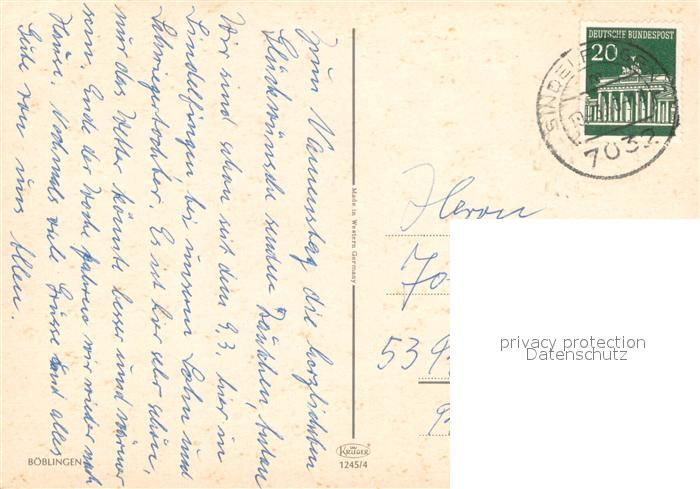 Zum Namenstag die herzlichsten
Glückwünsche senden
Wir sind schon seit dem 9.3. hier in
Sindelfingen bei unserem Sohn und
Schwiegertochter. Es ist hier sehr schön,
nur das Wetter könnte besser und wärmer
sein. Ende der Woche fahren wir wieder nach
Hause. Nochmals viele Grüsse und alles
Gute von uns Allen.
BÖBLINGEN
Made in Western Germany
KRÜGER
1245/4
DEUTSCHE BUNDESPOST
20
7032
Herrn
53
privacy protection
Datenschutz